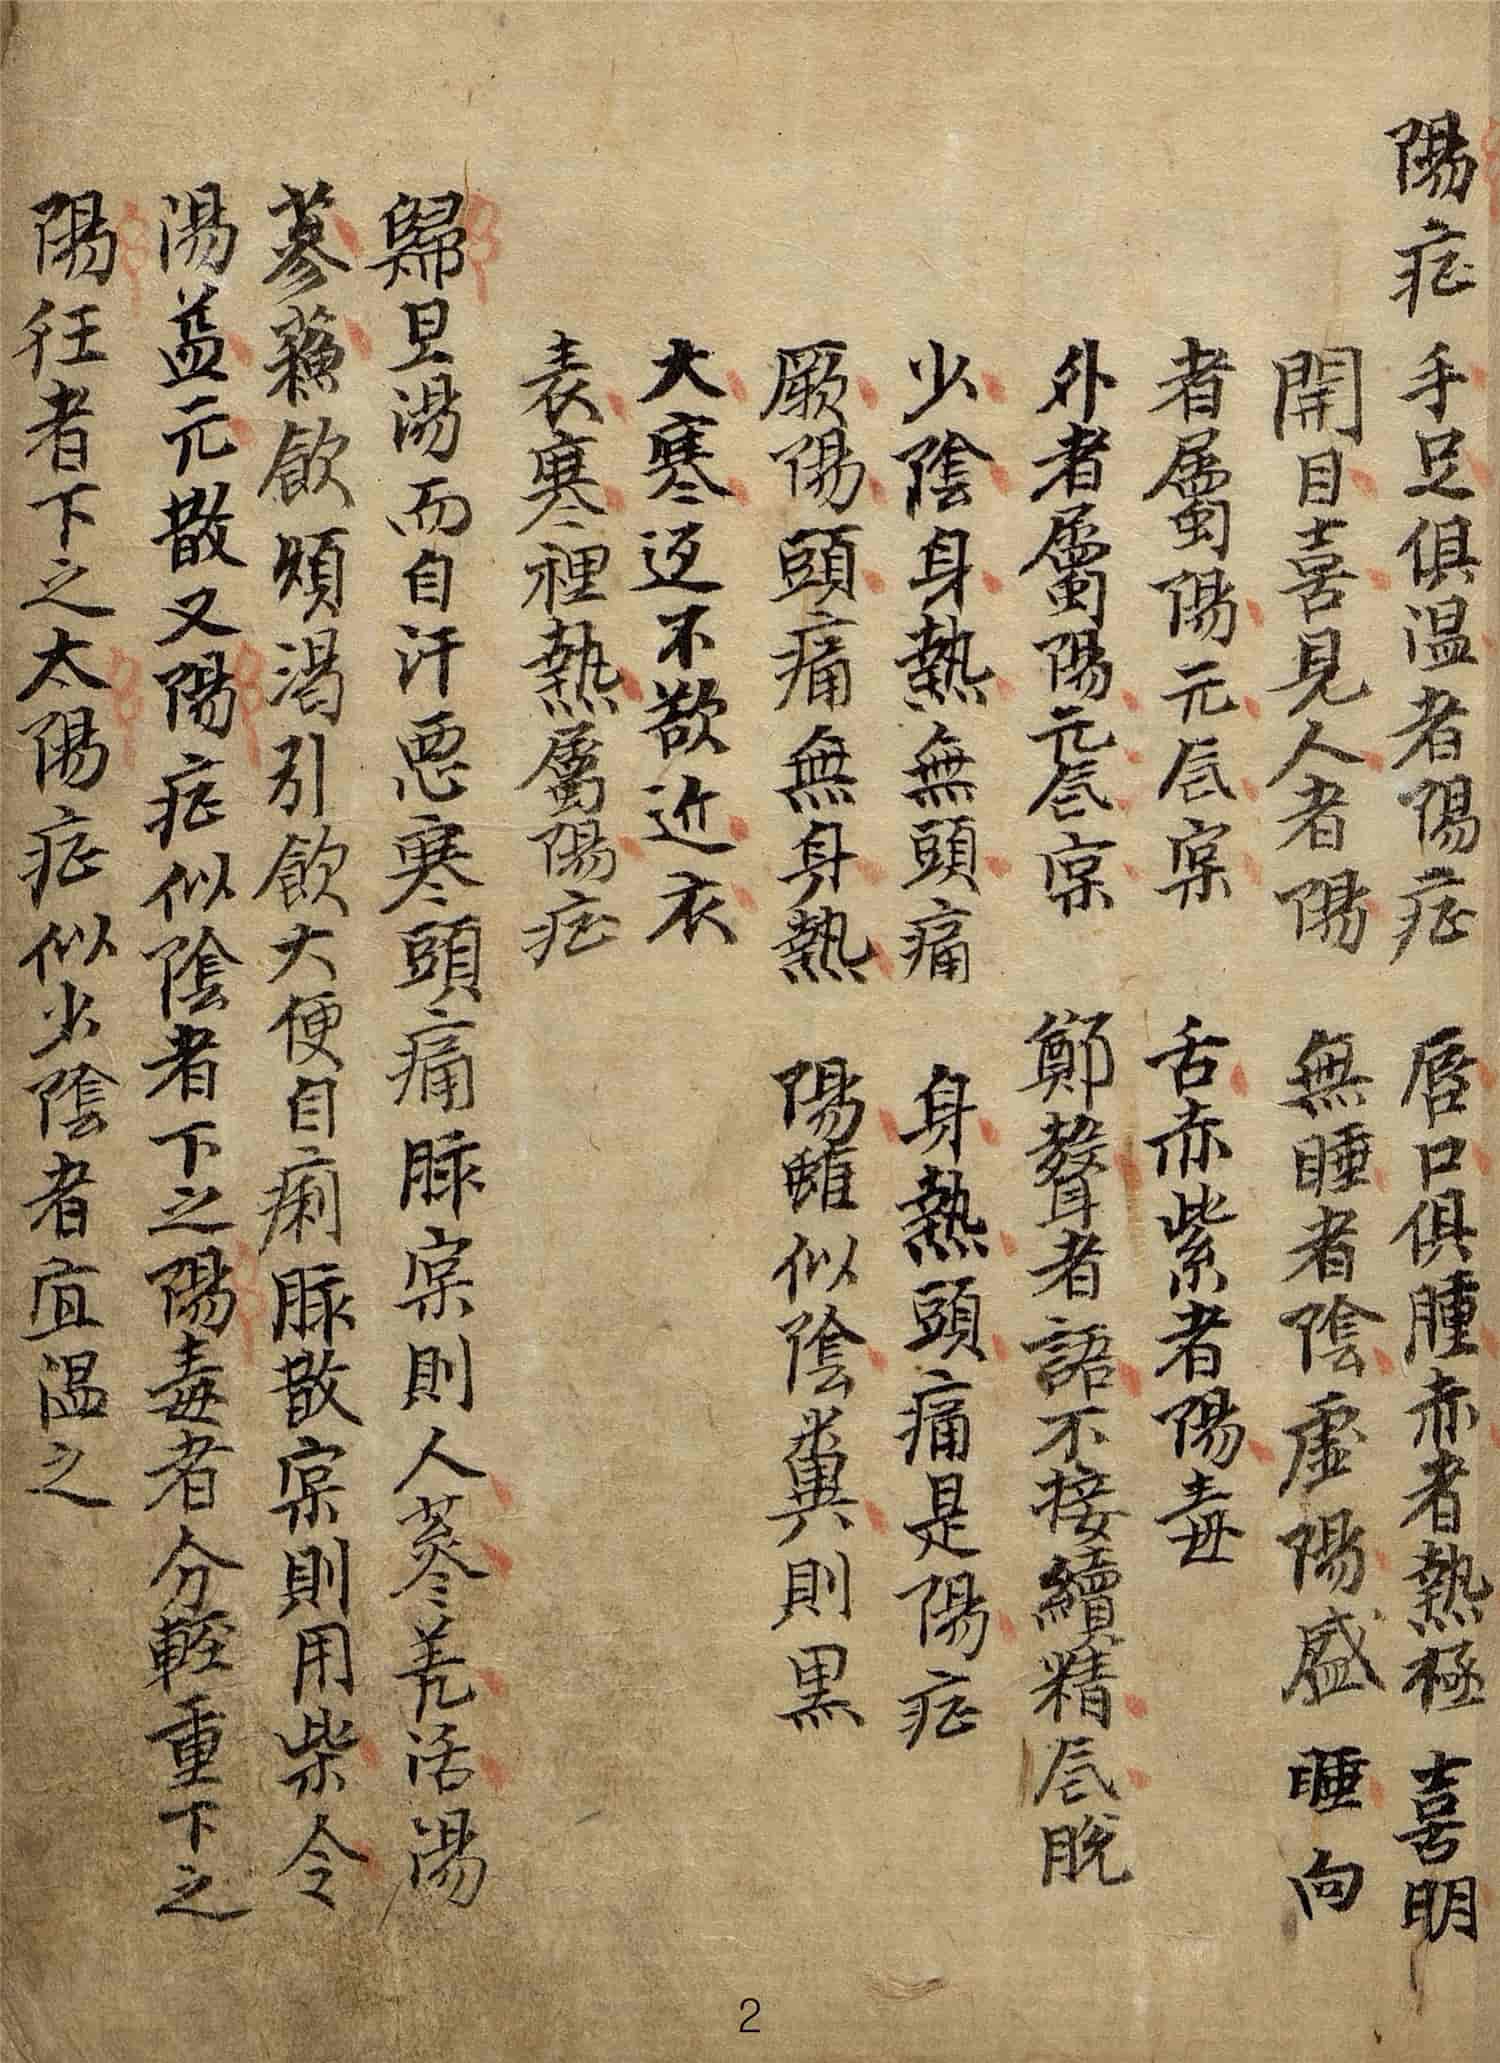 陽症 手足俱温者陽症 唇口俱腫赤者熱極 喜明
開目喜見人者陽 無睡者陰虛陽盛 睡向
者屬陽元气寀 舌赤紫者陽毒
外者屬陽元气寀 鄭聲者語不接續精气脫
少陰身熱無頭痛 身熱頭痛是陽症
厥陽頭痛無身熱 陽雖似陰糞則黑
大寒迓不欲近衣
表寒裡熱屬陽症
歸旦湯而自汗惡寒頭痛脉寀則人參羌活湯
蔘蘓飲煩渴引飲大便自痢脉散寀則用柴令
湯益元散又陽症似陰者下之陽毒者分輕重下之
陽狂者下之太陽症似少陰者宜温之
2